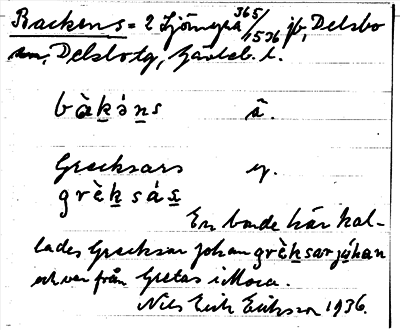 Backens = 2 Ljörnepå 365/1536 jb, Delsbo
sn, Delsbotg, Gävleb. l.
bàkə̀ns å.
Grecksars y.
grèksás
En bonde här kal-
lades Grecksar Johan grèksarjúhan
och var från Gretas i Mora.
Nils Erik Eriksson 1936.